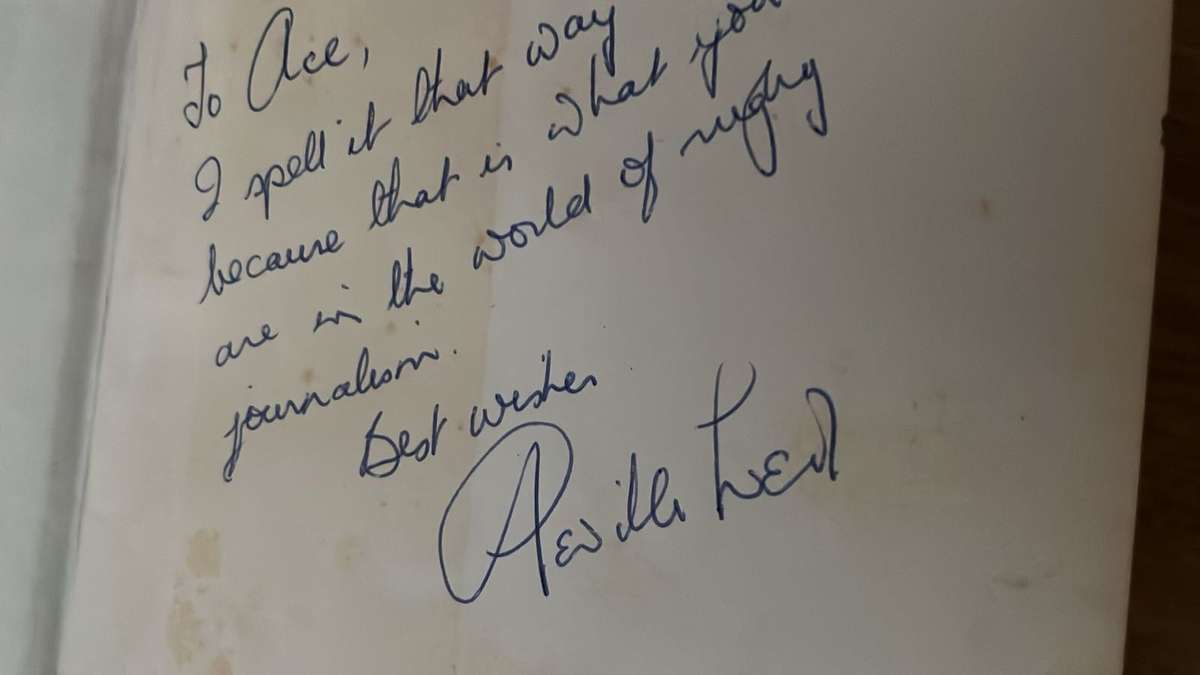 To Ace,
I spell it that way
because that is what you
are in the world of rugby
journalism.
Best wishes
Neville